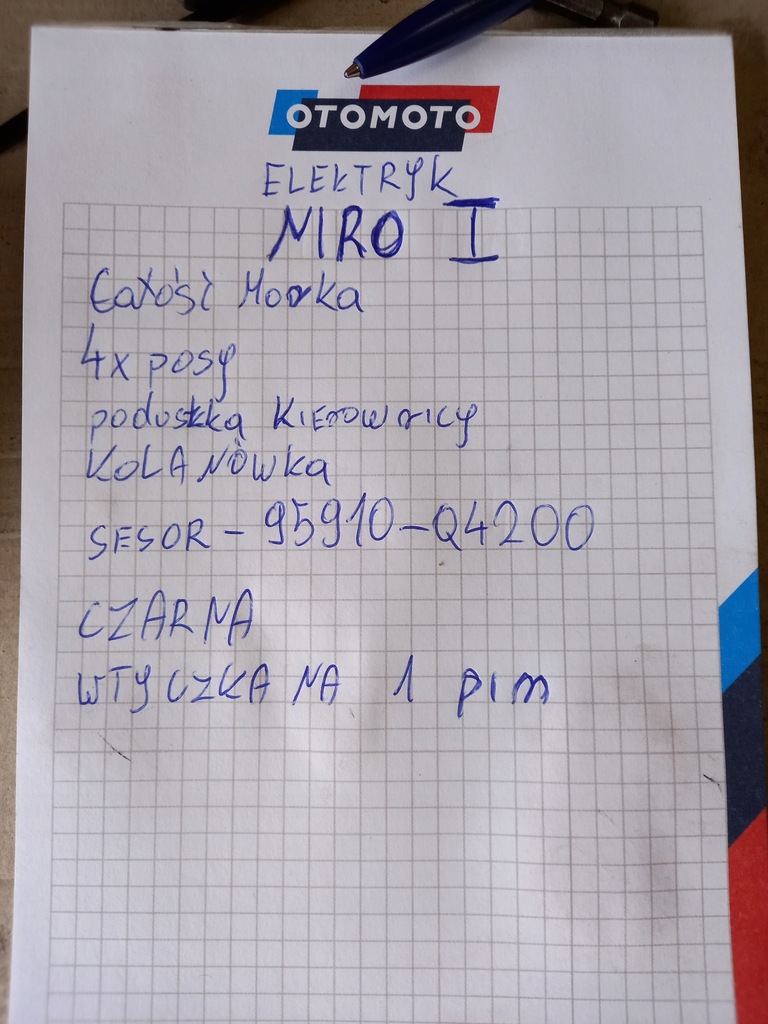 OTOMOTO
ELEKTRYK
NIRO I
Całość Morka
4x posy
poduszka Kierownicy
KOLANÓWKA
SESOR - 95910-Q4200
CZARNA
WTYCZKA NA 1 pim